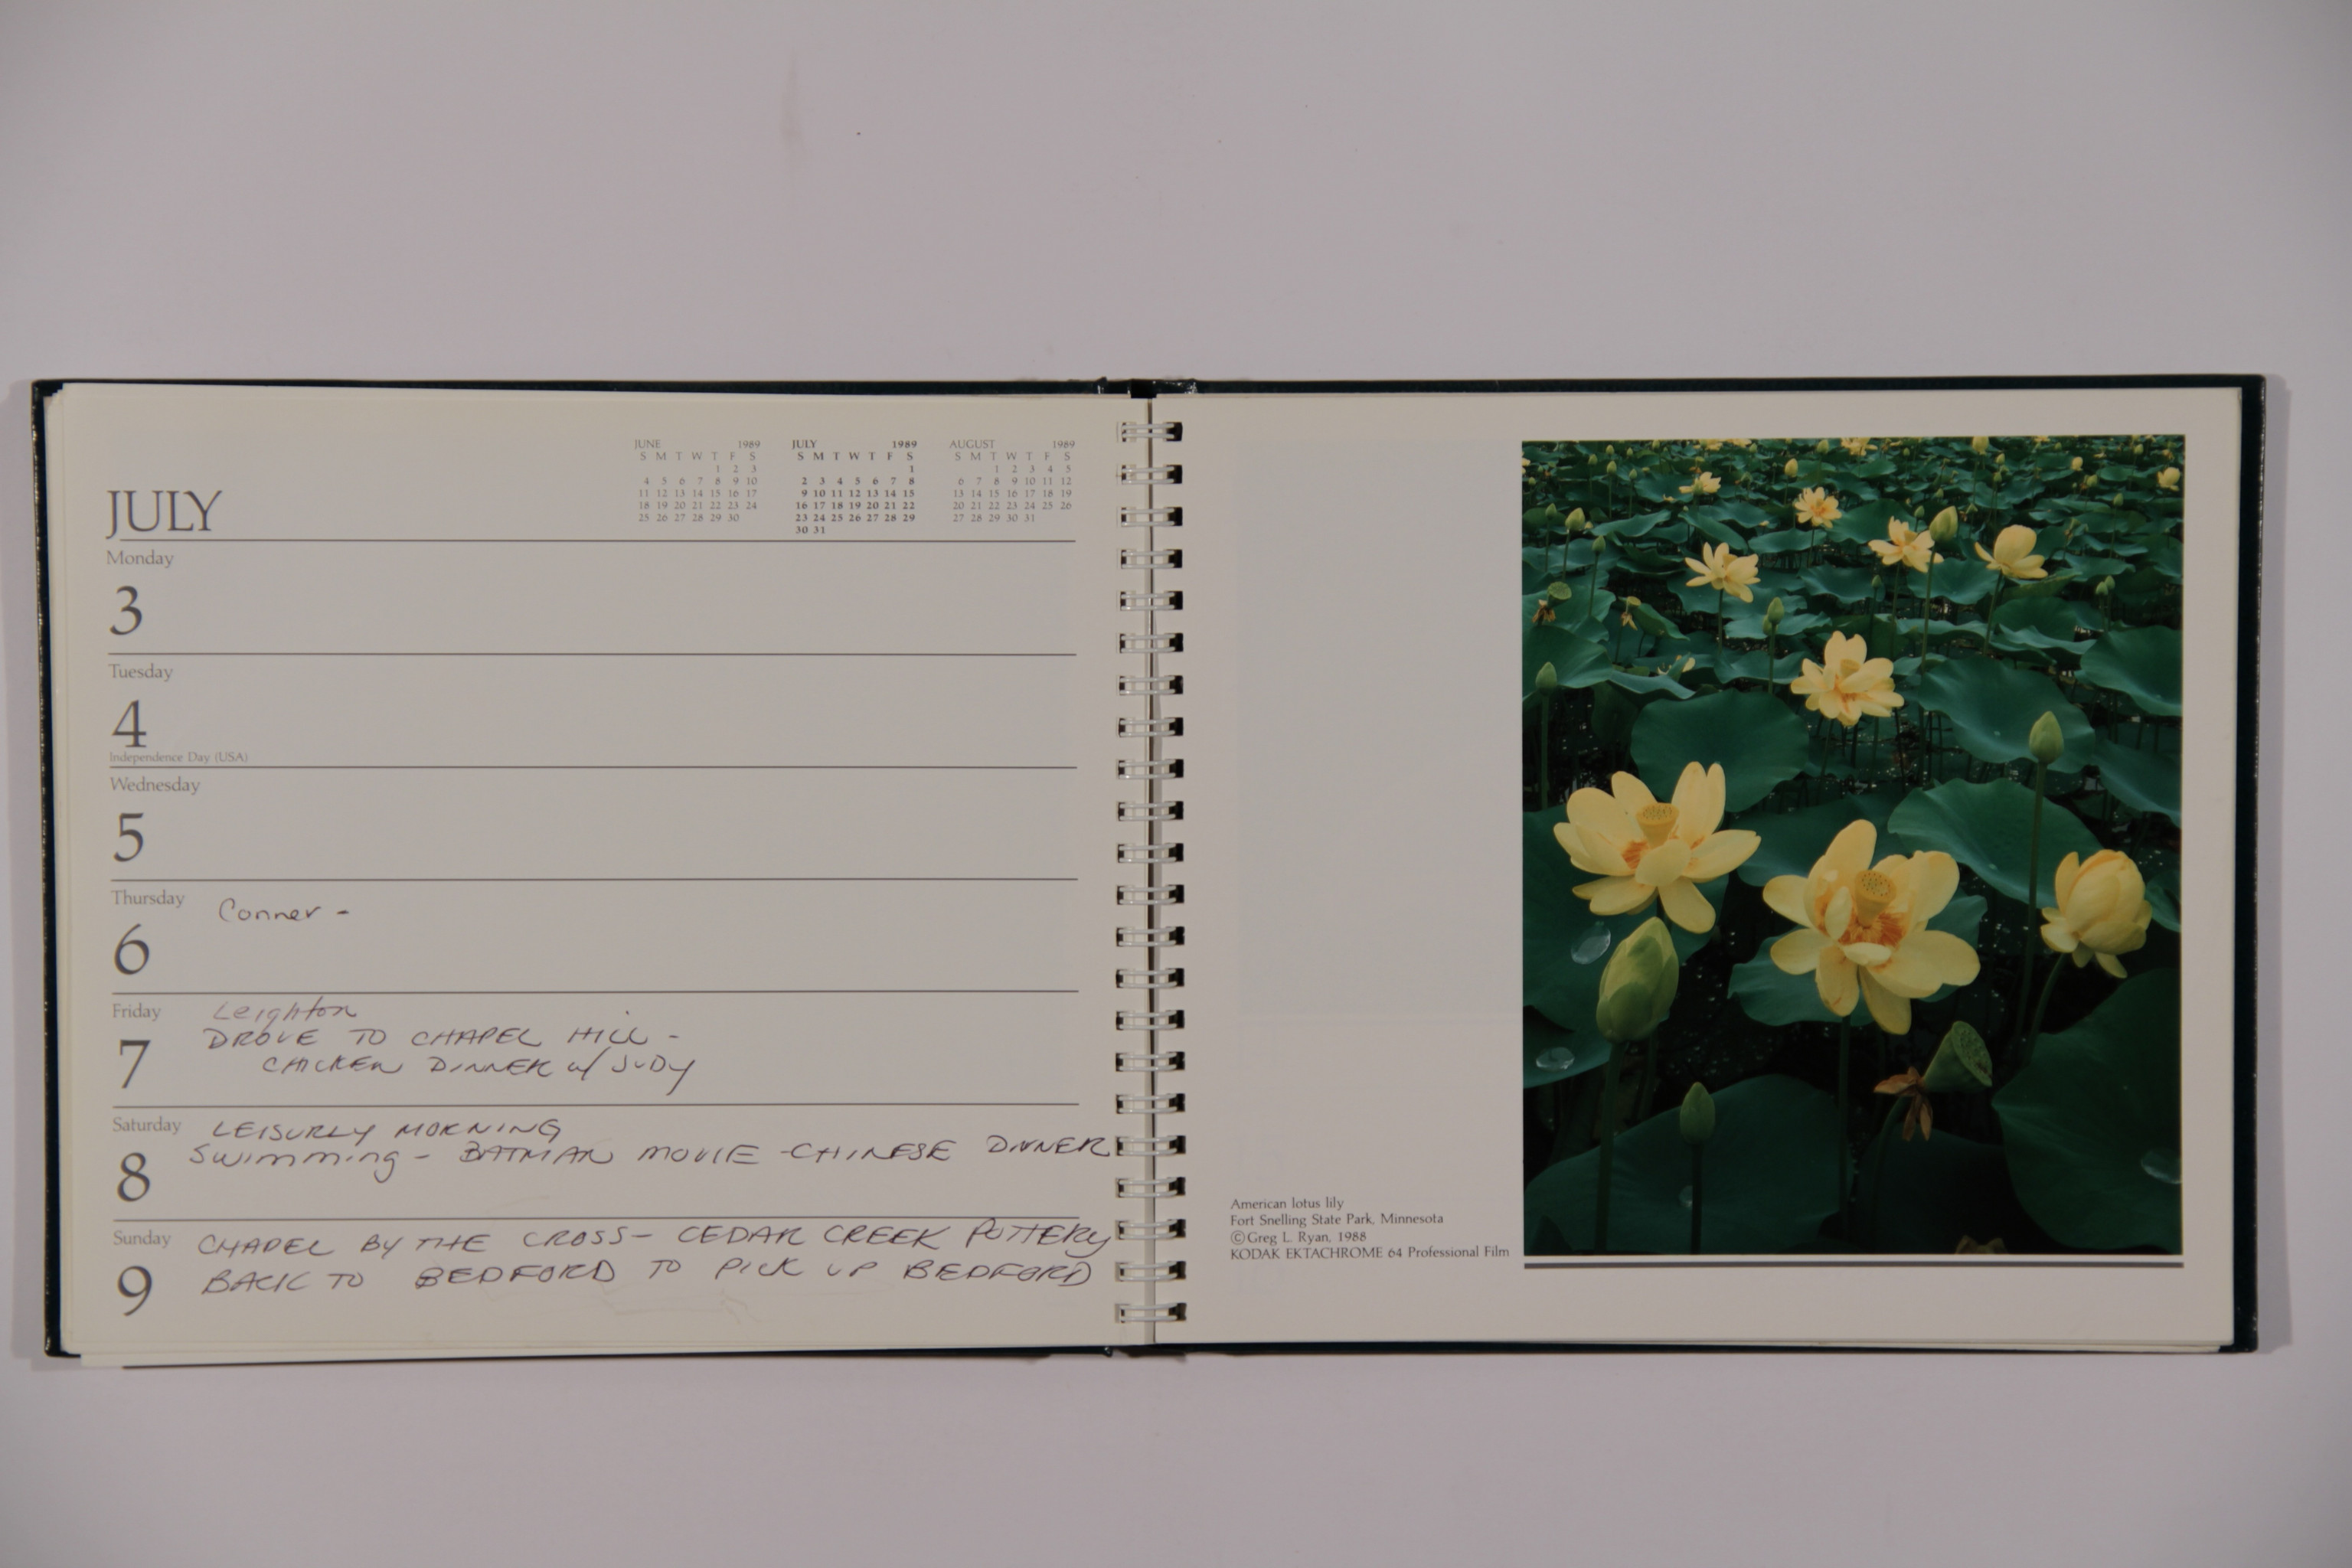 JUNE 1989
S M T W T F S
1 2 3
4 5 6 7 8 9 10
11 12 13 14 15 16 17
18 19 20 21 22 23 24
25 26 27 28 29 30
JULY 1989
S M T W T F S
1
2 3 4 5 6 7 8
9 10 11 12 13 14 15
16 17 18 19 20 21 22
23 24 25 26 27 28 29
30 31
AUGUST 1989
S M T W T F S
1 2 3 4 5
6 7 8 9 10 11 12
13 14 15 16 17 18 19
20 21 22 23 24 25 26
27 28 29 30 31
JULY
Monday
3
Tuesday
4
Independence Day (USA)
Wednesday
5
Thursday
6
Conner -
Friday
7
Leighton
DROVE TO CHAPEL HILL -
CHICKEN DINNER w/ JUDY
Saturday
8
LEISURLY MORNING
Swimming - BATMAN MOVIE - CHINESE DINNER
Sunday
9
CHAPEL BY THE CROSS - CEDAR CREEK POTTERY
BACK TO BEDFORD TO PICK UP BEDFORD
American lotus lily
Fort Snelling State Park, Minnesota
© Greg L. Ryan, 1988
KODAK EKTACHROME 64 Professional Film